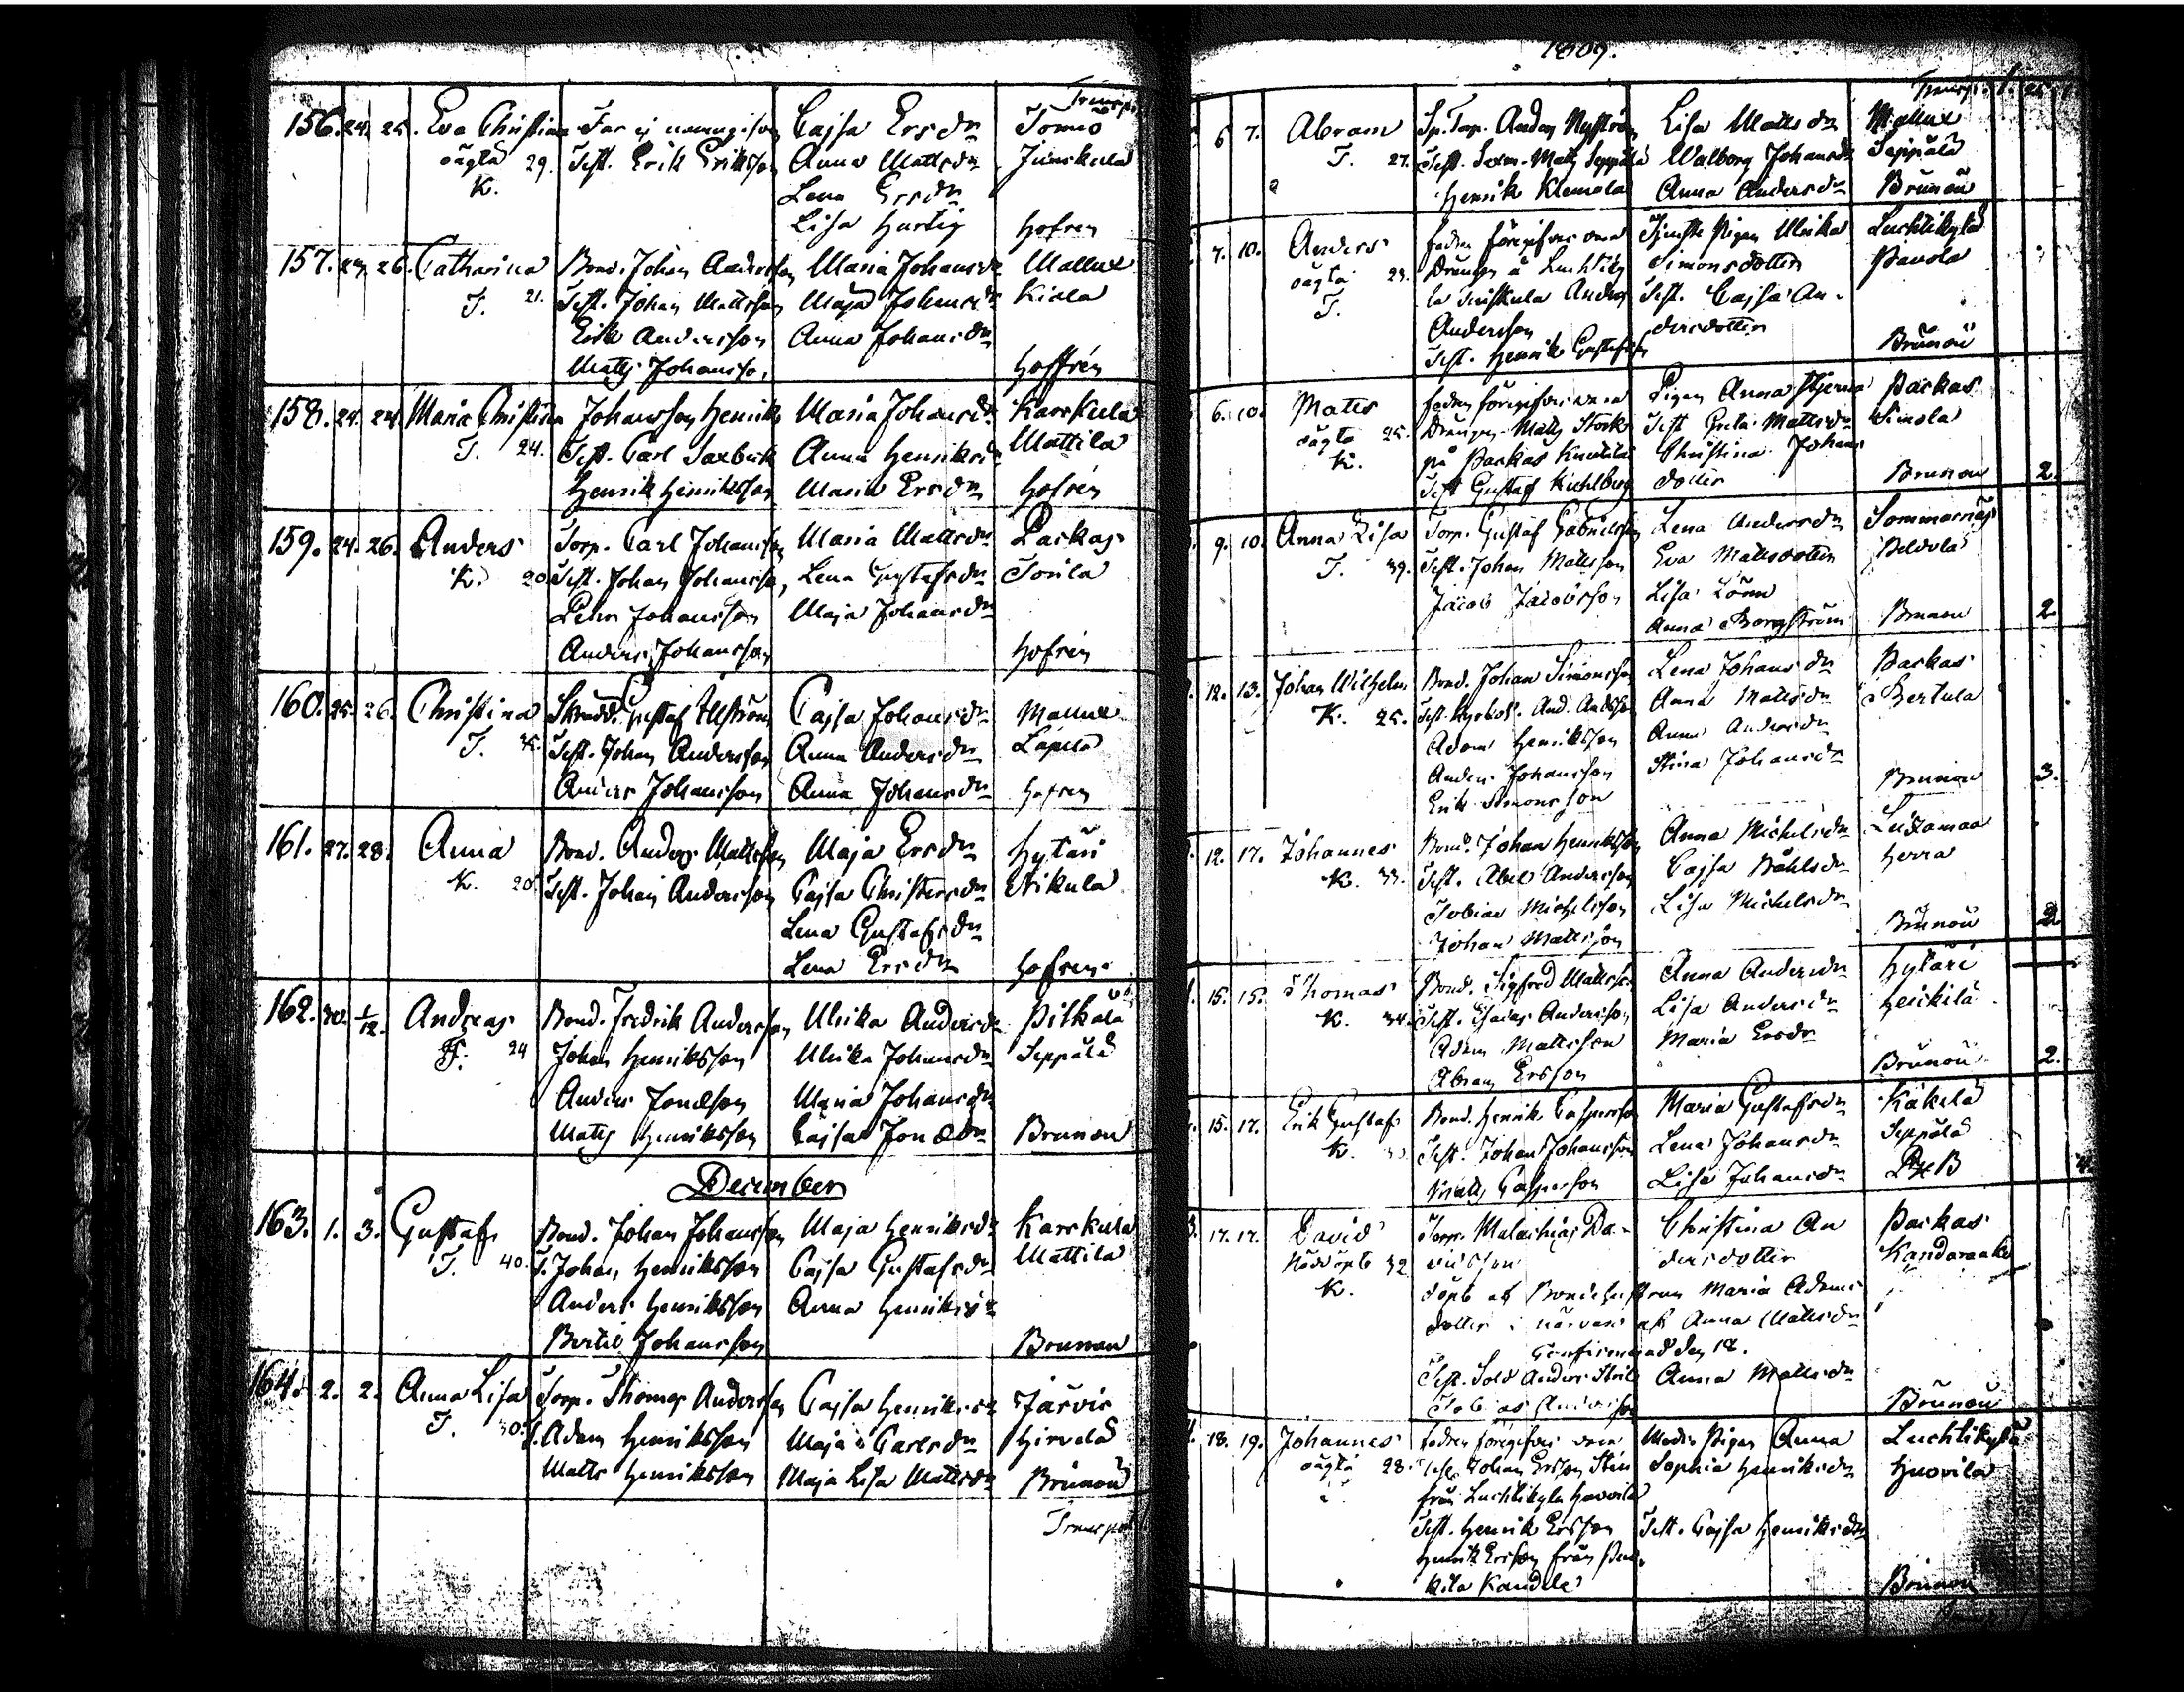 Transp.
156. 24. 25. Eva Christina Far ej namngifven Cajsa Ersdr Tomio
oägta 29. Test. Erik Eriksson Anna Mattsdr Junskula
K. Lena Ersdr
Lisa Hartig Hofren
157. 24. 26. Catharina Bond. Johan Andersson Maria Johansdr Mallux
T. 21. Test. Johan Mattsson Maja Johansdr Kiala
Erik Andersson Anna Johansdr
Matts Johansson Hoffrén
158. 24. 24. Maria Christina Johansson Henrik Maria Johansdr Karskula
T. 24. Test. Carl Saxbeck Anna Henriksdr Mattila
Henrik Henriksson Maria Ersdr Hofrén
159. 24. 26. Anders Torp. Carl Johansson Maria Mattsdr Parkas
K. 20 Test. Johan Johansson, Lena Gustafsdr Toifla
Petter Johansson Maja Johansdr
Anders Johansson Hofrén
160. 25. 26. Christina Skrädd. Gustaf Allström Cajsa Johansdr Mallux
T. Test. Johan Andersson Anna Andersdr Lapila
Anders Johansson Anna Johansdr Hofren
161. 27. 28. Anna Bond. Anders Mattsson Maja Ersdr Hytäri
K. 20 Test. Johan Andersson Cajsa Christersdr Nikula
Lena Gustafsdr
Lena Ersdr Hofren
162. 30. 1/12. Andreas Bond. Fredrik Andersson Ulrika Andersdr Pitkälä
T. 24 Johan Henriksson Ulrika Johansdr Seppälä
Anders Jonæson Maria Johansdr
Matts Henriksson Cajsa Jonædr Brunou
December
163. 1. 3. Gustaf Bond. Johan Johansson Maja Henriksdr Karskula
T. 40. T. Johan Henriksson Cajsa Gustafsdr Mattila
Anders Henriksson Anna Henriksdr
Bertil Johansson Brunou
164. 2. 2. Anna Lisa Torp. Thomas Andersson Cajsa Henriksdr Järvis
T. 30. T. Adam Henriksson Maja Carlsdr Hirvelä
Matts Henriksson Maja Lisa Mattsdr Brunou
Transport
1809.
Transp.
6 7. Abram Sp. Torp. Anders Nyström Lisa Mattsdr Mallux
T. 27. Test. Sexm. Matts Seppälä Walborg Johansdr Seppälä
Henrik Klemola Anna Andersdr Brunou
7. 10. Anders fadren föregifves vara Tjenste Pigan Ulrika Luchtikylä
oägta 23. Drängen å Luchtiky Simonsdotter Pavola
T. la Junskula Anders Test. Cajsa An-
Andersson dersdotter
Test. Henrik Gustafsson Brunou
6. 10. Matts fadren föregifves vara Pigan Anna Stjerna Parkas
oägta 25. Drängen Matts Stork Test Greta Mattsdr Simola
K. på Parkas Knuutila Christina Johans
Test Gustaf Kiehlberg dotter Brunou 2.
9. 10. Anna Lisa Torp. Gustaf Gabrielsson Lena Andersdr Sommarnäs
T. 39. Test. Johan Mattsson Eva Mattsdotter Peldola
Jacob Jacobsson Lisa Lönn
Anna Borgström Brunou 2
12. 13. Johan Wilhelm Bond. Johan Simonsson Lena Johansdr Parkas
K. 25. Test. Kyrkov. And. Andsson Anna Mattsdr Bertula
Adam Henriksson Anna Andersdr
Anders Johansson Stina Johansdr Brunou 3.
Erik Simonsson
12. 17. Johannes Bond. Johan Henriksson Anna Michelsdr Leidamaa
K. 33. Test. Abel Andersson Cajsa Påhlsdr Herra
Tobias Michelsson Lisa Michelsdr
Johan Mattsson Brunou 2
15. 15. Thomas Bond. Sigfred Mattsson Anna Andersdr Hytäri
K. 34. Test. Esaias Andersson Lisa Andersdr Heikilä
Adam Mattsson Maria Ersdr
Abram Ersson Brunou 2.
15. 17. Erik Gustaf Bond. Henrik Caspersson Maria Gustafsdr Käkelä
K. Test. Johan Johansson Lena Johansdr Seppälä
Matts Caspersson Lisa Johansdr
17. 17. David Torp. Malachias Da- Christina An Parkas
Nöddöpt 32 vidsson dersdotter Kandaraako
K. döpt af Bondehustrun Maria Adams
dotter i närvaro af Anna Mattsdr
Confirmerad den 18.
Test. Sold Anders Anna Mattsdr
Tobias Andersson Brunou
18. 19. Johannes fadren föregifves vara Modr. Pigan Anna Luchtikylä
oägta 28. Johan Ersson Sophia Henriksdr Huovila
från Luchtikylä Huovila
Test. Henrik Ersson Test. Cajsa Henriksdr
Henrik Ersson från
Brunou